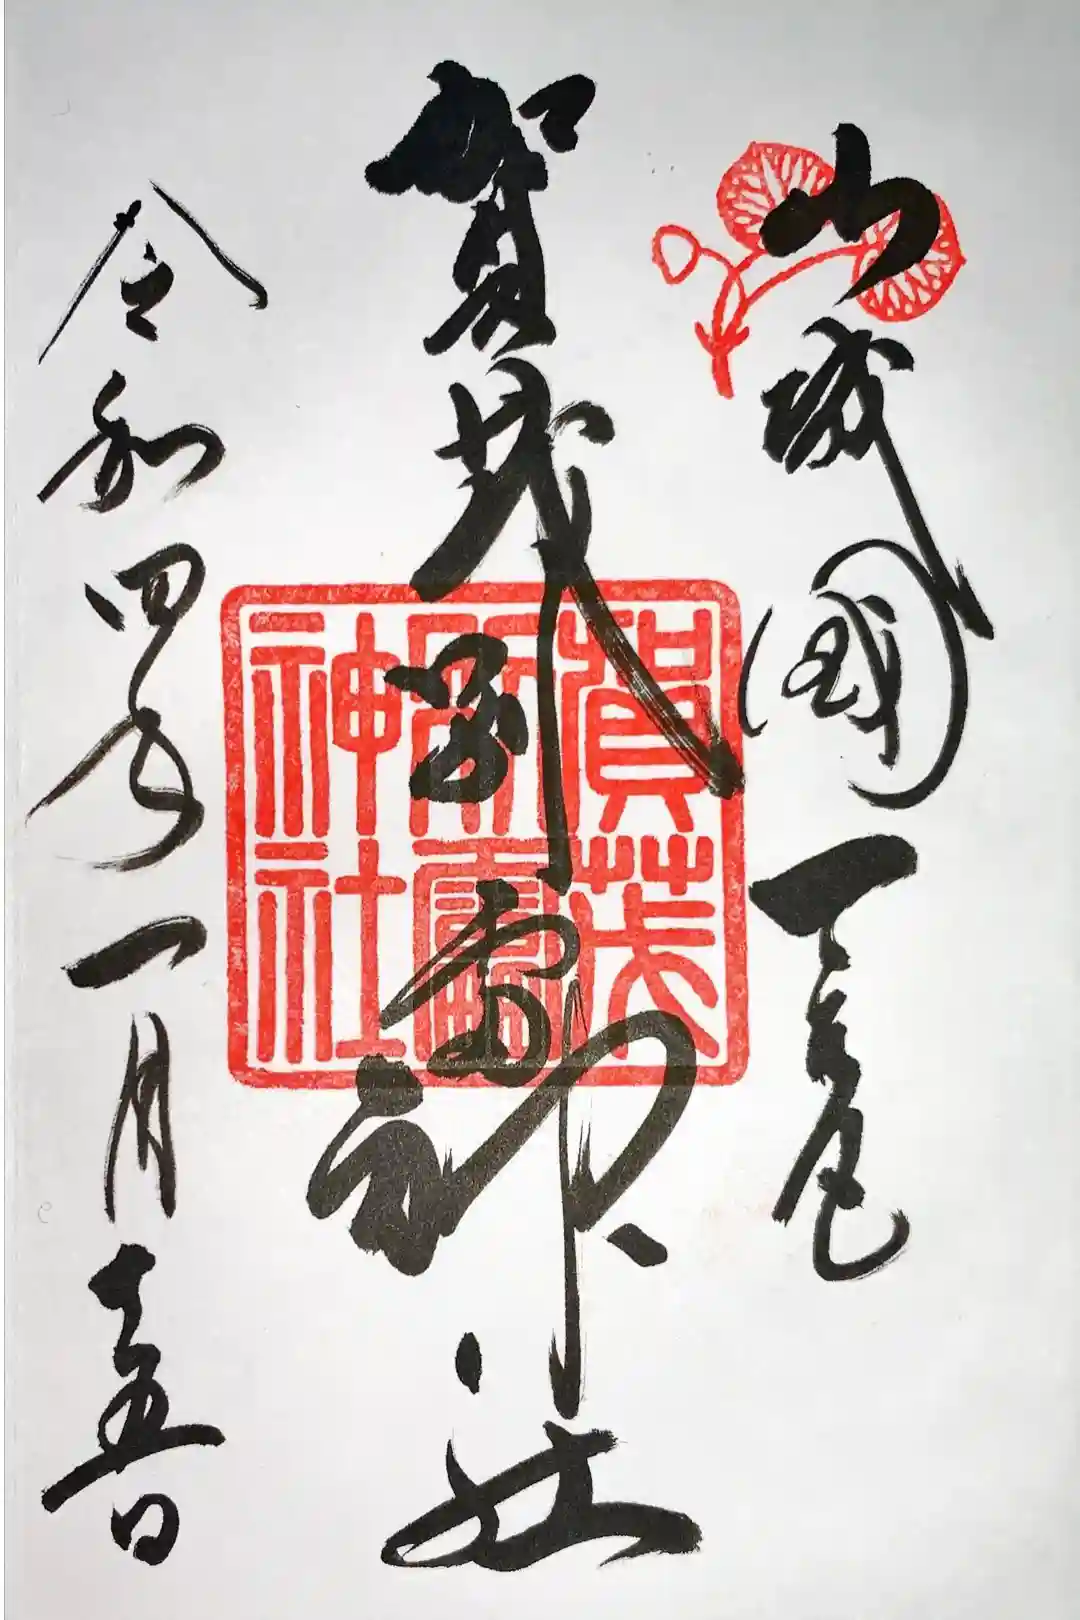 山城國一之宮
賀茂別雷神社
令和四年一月十五日
賀茂
別雷
神社